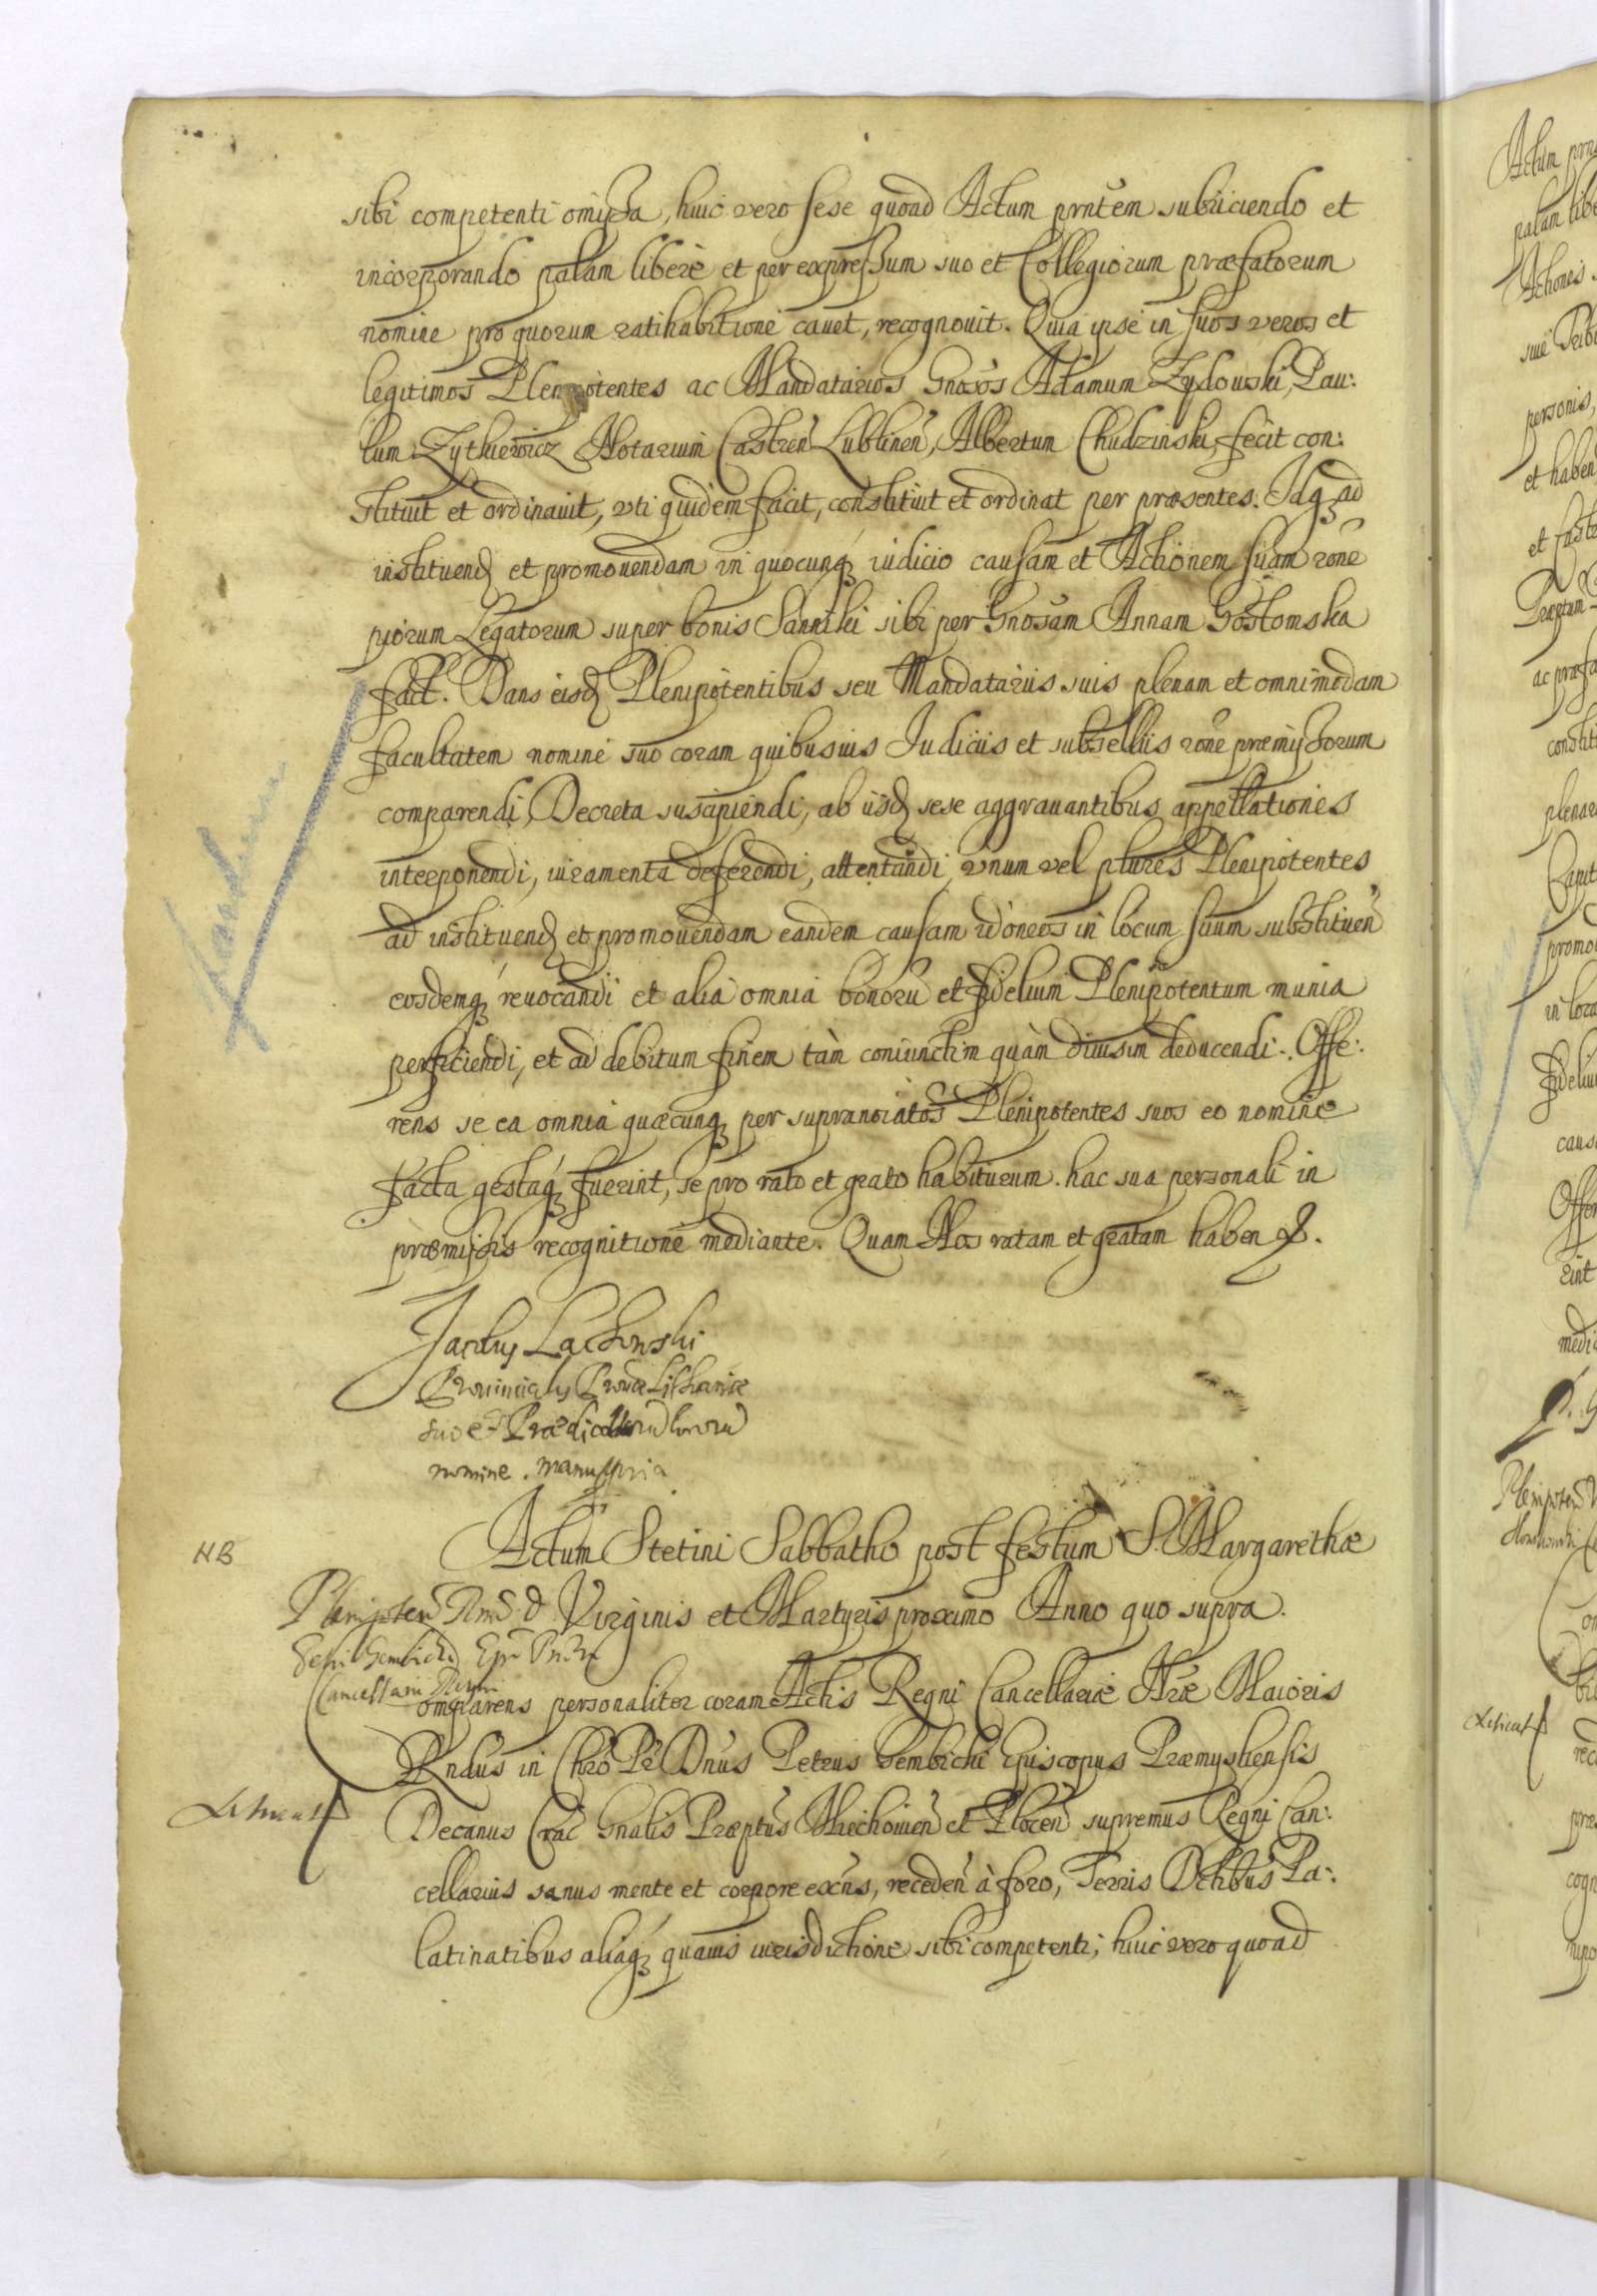 sibi competenti omissa, huic vero sese quoad Actum prntem subiiciendo et
incorporando palam libere et per expressum suo et Collegiorum præfatorum
nomine pro quorum ratihabitione cauet, recognouit. Quia ipse in suos veros et
legitimos Plenipotentes ac Mandatarios Gnosos Adamum Zydowski, Pau:
lum Zytkiewicz Notarium Castren Lublinen, Albertum Chudzinski, fecit con:
stituit et ordinauit, vti quidem facit, constituit et ordinat per præsentes. Idq ad
instituend et promouendam in quocunq iudicio causam et Actionem suam rone
piorum Legatorum super bonis Sanniki sibi per Gnosam Annam Gostomska
fact. Dans eisd Plenipotentibus seu Mandatariis suis plenam et omnimodam
facultatem nomine suo coram quibusuis Iudiciis et subselliis rone præmissorum
comparendi, Decreta suscipiendi, ab iisd sese aggrauantibus appellationes
interponendi, iuramenta deferendi, attentandi, vnum vel plures Plenipotentes
ad instituend et promouendam eandem causam idoneos in locum suum substituen
eosdemq reuocandi et alia omnia bonoru et fidelium Plenipotentum munia
perficiendi, et ad debitum finem tàm coniunctim quàm diuisim deducendi. Offe:
rens se ea omnia quæcunq per supranoiatos Plenipotentes suos eo nomine
facta gestaq fuerint, se pro rato et grato habiturum. hac sua personali in
præmissis recognitione mediante. Quam Nos ratam et gratam haben &.
Jacobus Lachowski
Prouincialis Prouæ Lithaniæ
suo et Prædictorum
nomine. manu ppria
Actum Stetini Sabbatho post festum S. Margarethæ
NB
Plenipoten Rmi D Virginis et Martyris proximo Anno quo supra.
Petri Gembicki Epi Præm
Cancellarii Regni
Comparens personaliter coram Actis Regni Cancellariæ Nræ Maioris
Rndus in Chro Pr Dnus Petrus Gembicki Episcopus Præmysliensis
Decanus Crac Gnalis Præptus Miechouien et Plocen supremus Regni Can:
cellarius sanus mente et corpore exns, receden à foro, Terris Dctibus Pa:
latinatibus aliaq quauis iurisdictione sibi competenti; huic vero quoad